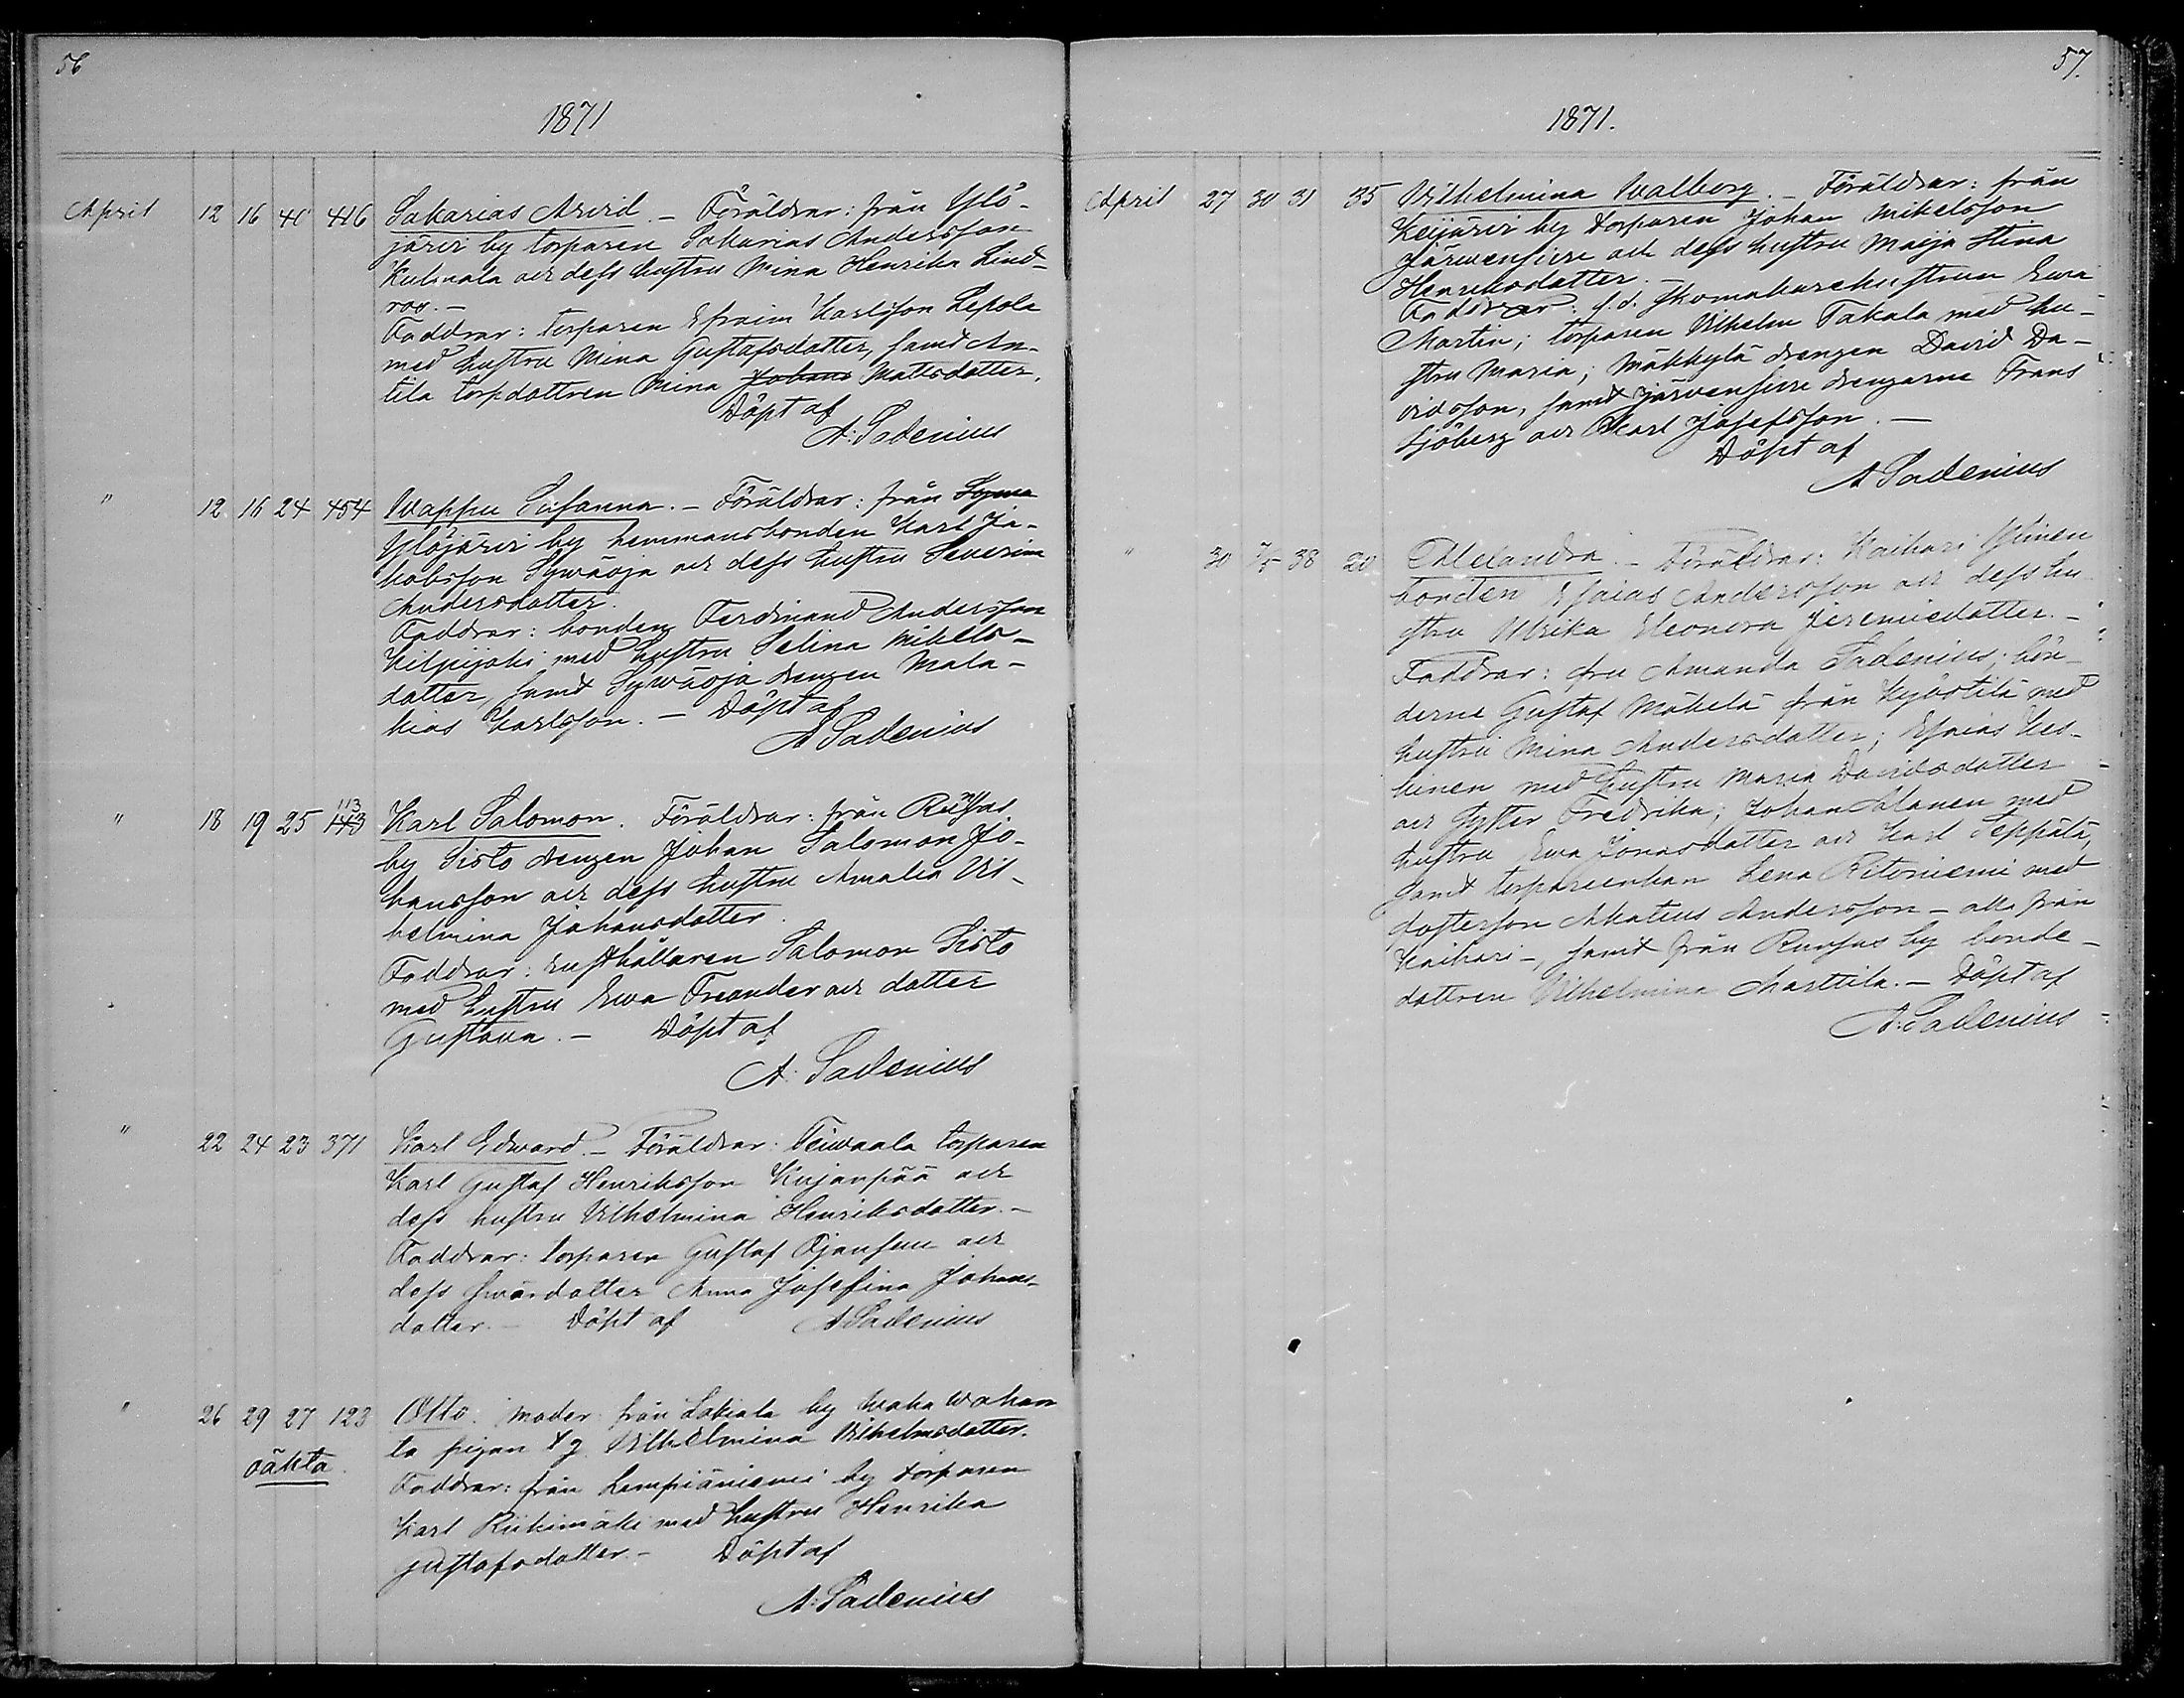 56
1871
April 12 16 40 416 Sakarias Arvid. – Föräldrar: från Ylö-
järvi by torparen Sakarias Andersson
Kulmala och dess hustru Mina Henrika Lind-
roos. –
Faddrar: torparen Efraim Karlsson Lepola
med hustru Mina Gustafsdotter, samt An-
tila torpdottren Mina Johans Mattsdotter.
Döpt af
A: Sadenius
" 12 16 24 454 Wappu Susanna. – Föräldrar: från
Ylöjärvi by hemmansbonden Karl Ja-
kobsson Sywäoja och dess hustru Severina
Andersdotter.
Faddrar: bonden Ferdinand Andersson
Kilpijoki med hustru Selina Mikels-
dotter, samt Sywäoja drengen Mala-
kias Karlsson. – Döpt af
A Sadenius
113
" 18 19 25 143 Karl Salomon. Föräldrar: från Runsas
by Sisto drengen Johan Salomon Jo-
hansson och dess hustru Amalia Vil-
helmina Johansdotter.
Faddrar: rusthållaren Salomon Sisto
med hustru Ewa Freander och dotter
Gustava. – Döpt af
A: Sadenius
" 22 24 23 371 Karl Edward. – Föräldrar: Teiwaala torparen
Karl Gustaf Henriksson Kujanpää och
dess hustru Vilhelmina Henriksdotter. –
Faddrar: torparen Gustaf Ojansuu och
dess swärdotter Anna Josefina Johans-
dotter. – Döpt af A Sadenius
" 26 29 27 123 Otto. Moder: från Lakiala by
ta pigan Vilhelmina Vilhelmsdotter.
oäkta.
Faddrar: från Lempiäniemi by torparen
Karl Riikimäki med hustru Henrika
Gustafsdotter. – Döpt af
A: Sadenius
57.
1871.
April 27 30 31 35 Vilhelmina Walborg. – Föräldrar: från
Keijärvi by torparen Johan Mikelsson
Järvensivu och dess hustru Maija Stina
Henriksdotter.
Faddrar: f.d. skomakarehustrun Ewa
Martin; torparen Vilhelm Takala med hu-
stru Maria; Mäkkylä drengen David Da-
vidsson, samt Järvensivu drengarne Frans
Sjöberg och Karl Josefsson. –
Döpt af
A Sadenius
" 30 7/5 38 20 Alexandra. – Föräldrar: Kaihari
bonden Esaias Andersson och dess hu-
stru Ulrika Eleonora Jeremiedotter. –
Faddrar: fru Amanda Sadenius; bön-
derne Gustaf Mäkelä från Kyöstilä med
hustru Mina Andersdotter; Esaias Kes-
kinen med hustru Maria Davidsdotter
och syster Fredrika; Johan Alanen med
hustru Ewa Jonasdotter och Karl Seppälä,
samt torpareenkan Lena Ritoniemi med
dotterson Akatius Andersson – alla från
Kaihari –, samt från Runsas by bonde-
dottren Vilhelmina Marttila. – Döpt af
A: Sadenius